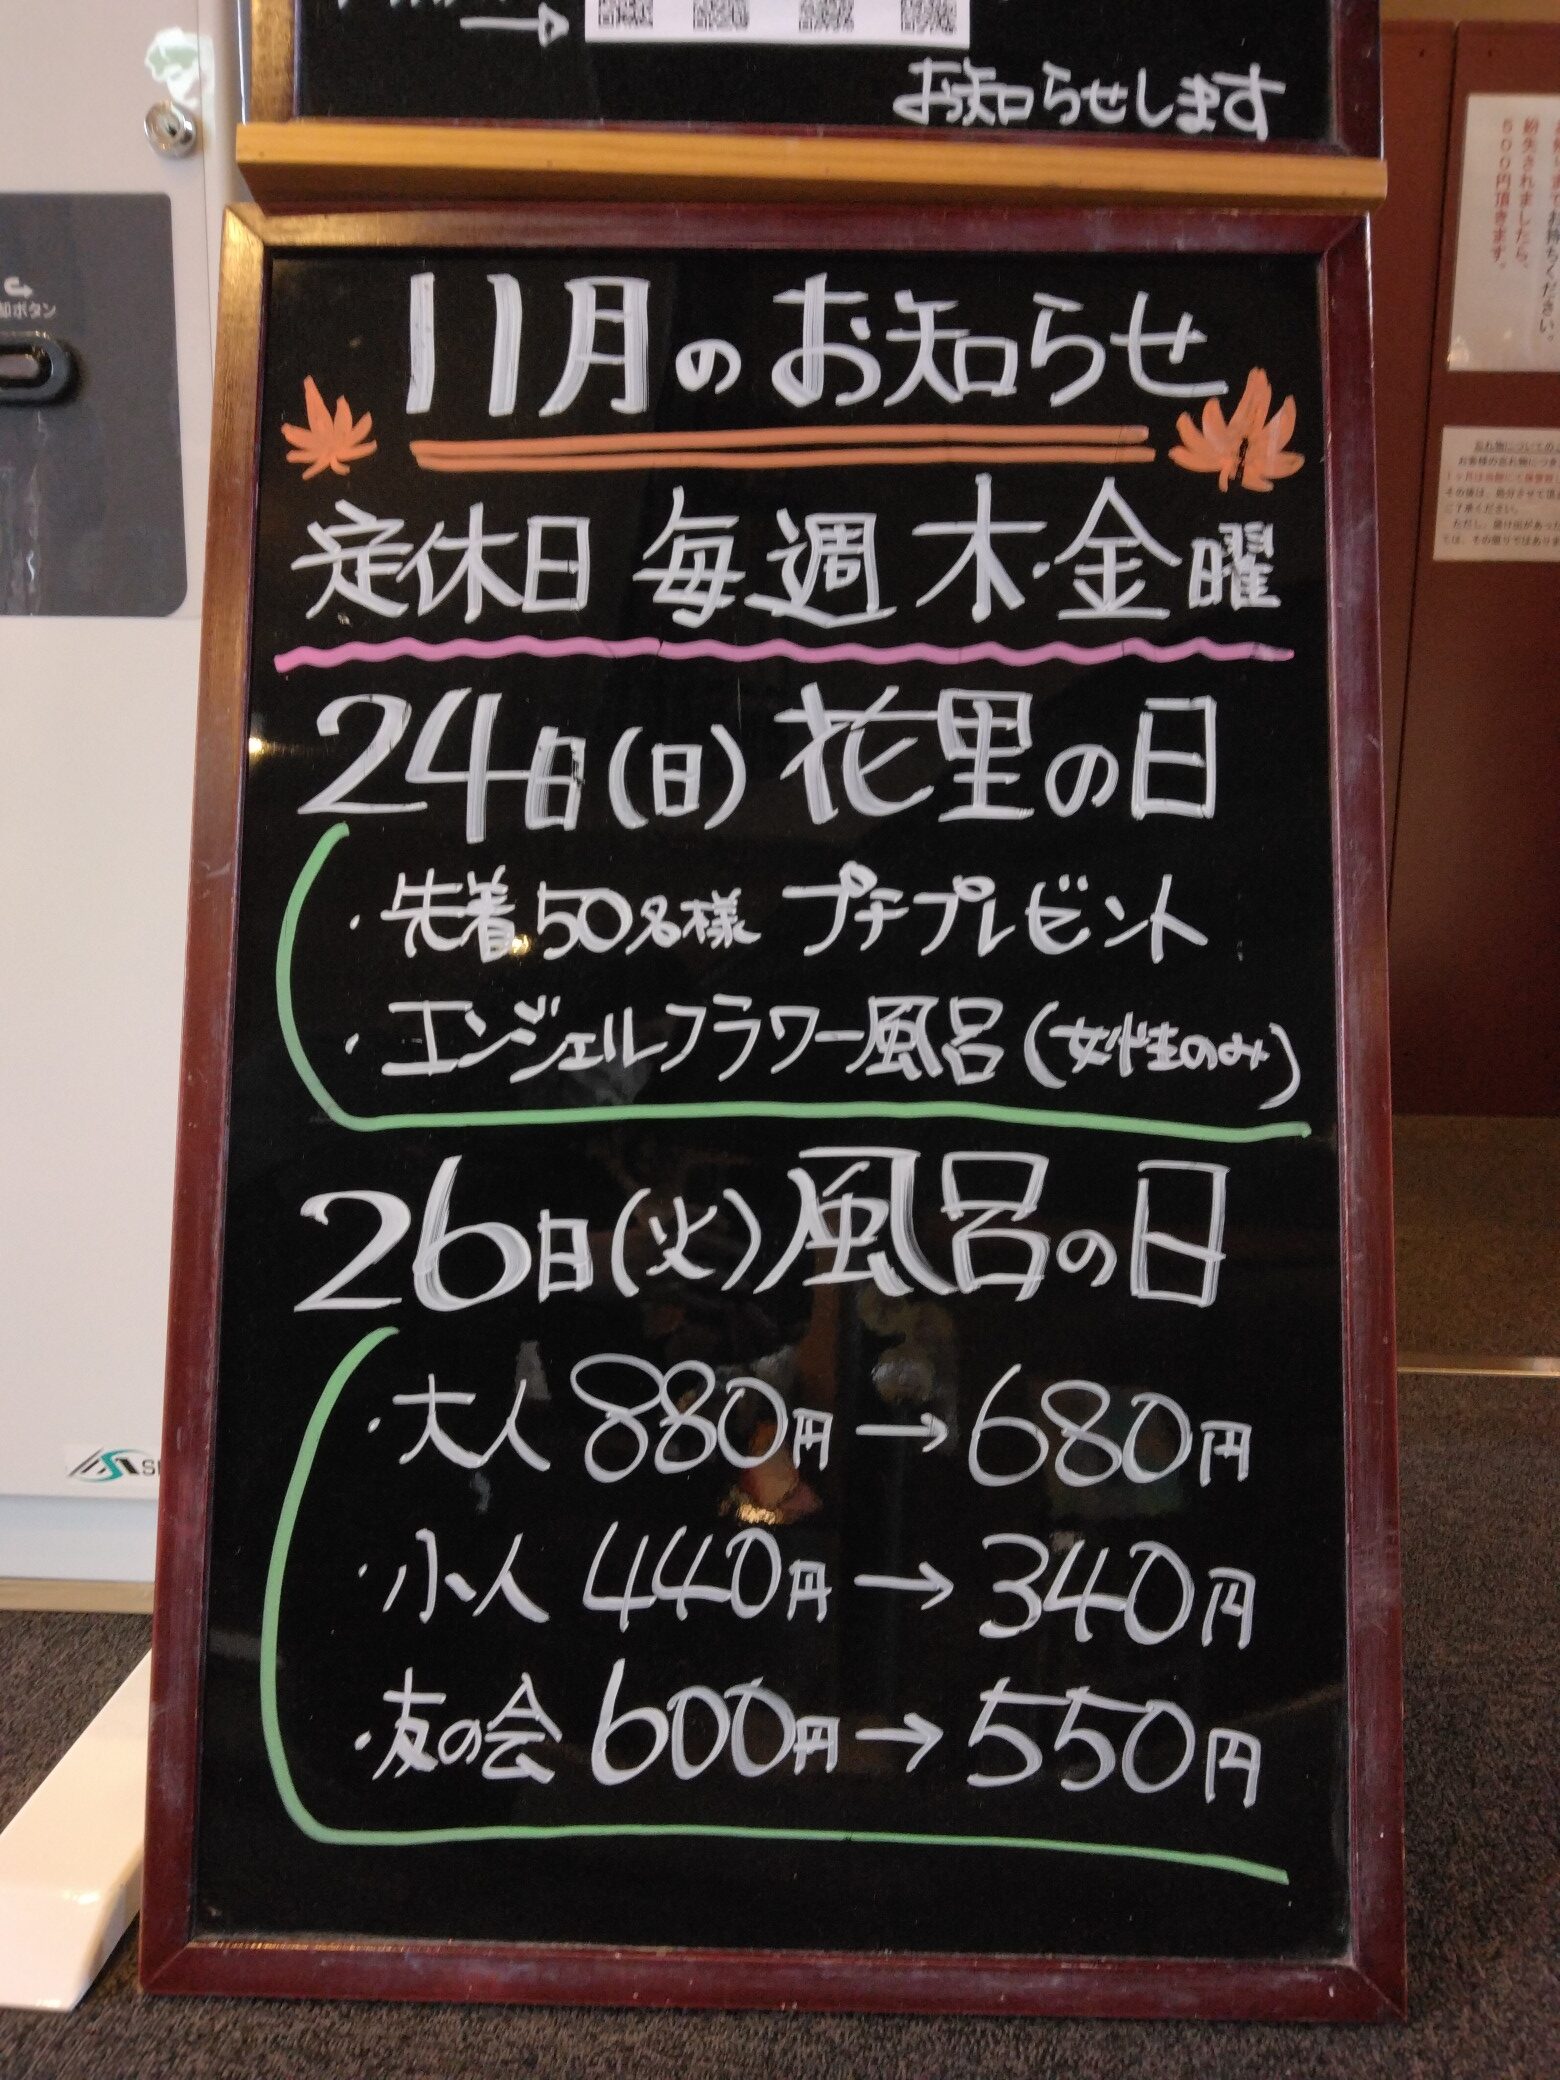 お知らせします
11月のお知らせ
定休日 毎週 木・金曜
24日(日) 花里の日
・先着50名様 プチプレゼント
・エンジェルフラワー風呂(女性のみ)
26日(火) 風呂の日
・大人 880円→680円
・小人 440円→340円
・友の会 600円→550円
却ボタン
紛失されましたら、
500円頂きます。